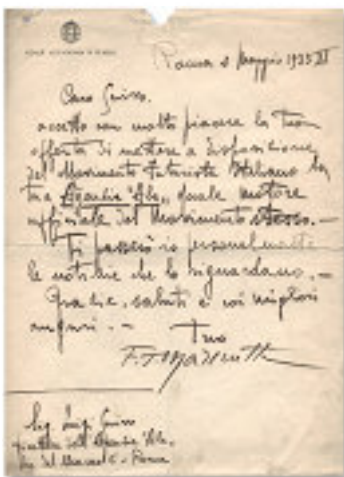 REALE ACCADEMIA D'ITALIA
Roma 8 Maggio 1933 XI
Caro Guisso.
accetto con molto piacere la tua
offerta di mettere a disposizione
del Movimento Futurista Italiano la
tua Agenzia "Ala" quale motore
ufficiale del Movimento stesso. —
Ti passerò io personalmente
le notizie che lo riguardano. —
Grazie, saluti e coi migliori
auguri. —
Tuo
F. T. Marinetti
Sig. Luigi
Direttore dell'Agenzia "Ala"
Roma